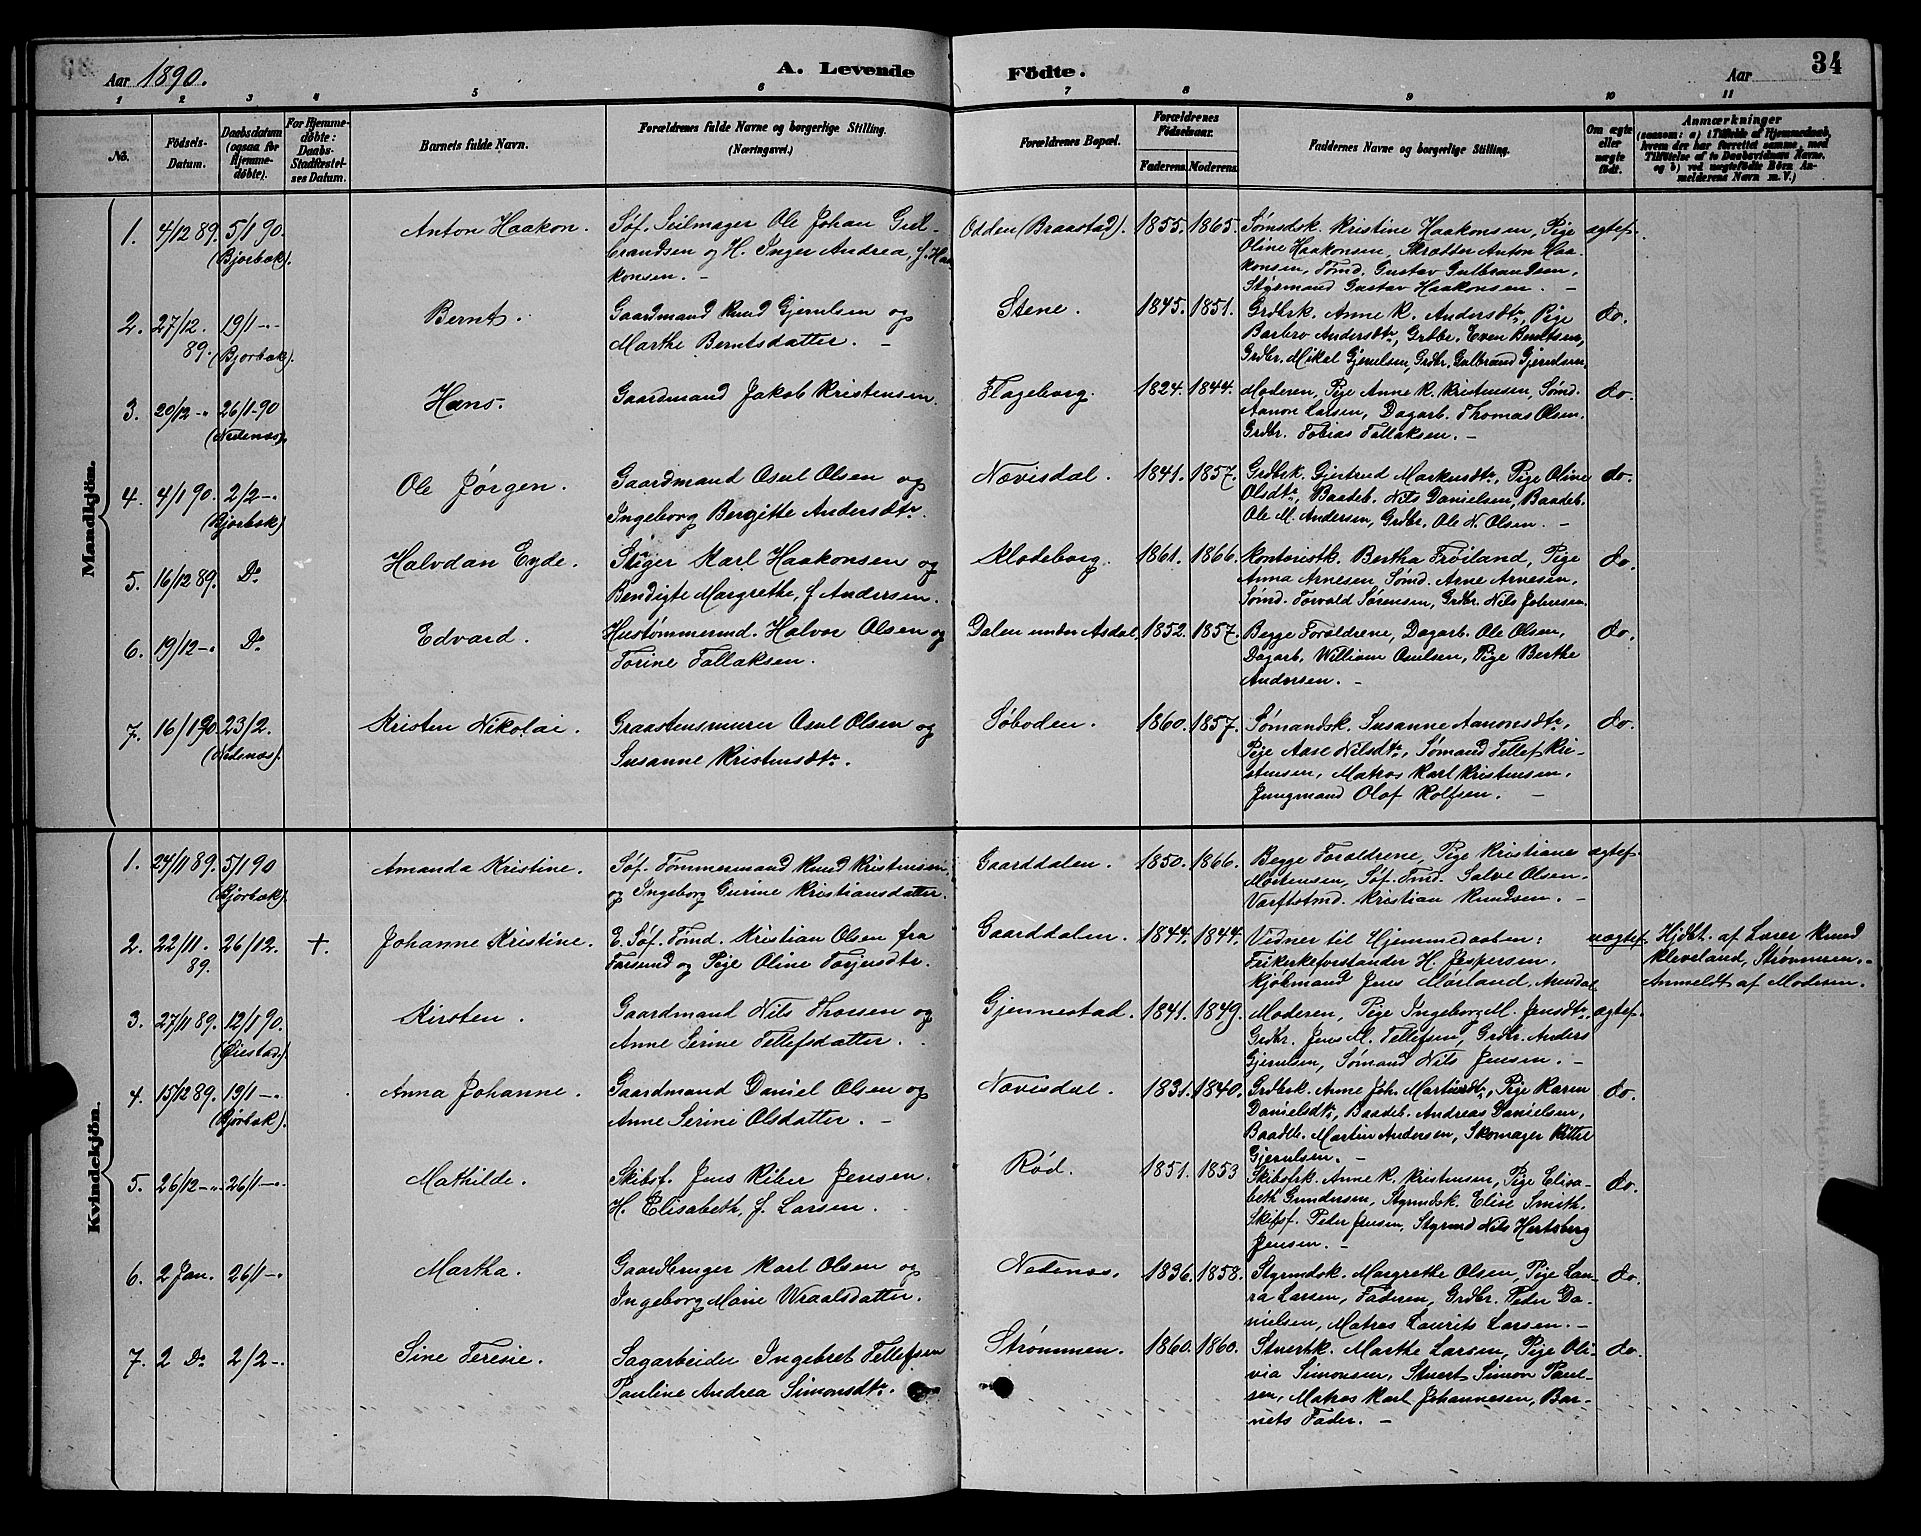 Aar 1890.
A. Levende Födte.
Aar
34
1 2 3 4 5 6 7 8 9 10 11
No.
Födsels-Datum.
Daabsdatum (ogsaa for Hjemmedöbte).
For Hjemmedöbte: Daabs-Stadfæstelses Datum.
Barnets fulde Navn.
Forældrenes fulde Navne og borgerlige Stilling. (Næringsvei.)
Forældrenes Bopæl.
Forældrenes Födselsaar.
Faderens. Moderens.
Faddernes Navne og borgerlige Stilling.
Om ægte eller uægte födt.
Anmærkninger
(saasom: a) i Tilfælde af Hjemmedaab, hvem der har forrettet samme, med Tilföielse af to Daabsvidners Navne, og b) ved uægtefödte Börn Anmelderens Navn m. V.)
Mandkjön.
1. 4/12 89. 5/1 90. (Bjorbæk). Anton Haakon. Søf. Seilmager Ole Johan Gulbrandsen og H. Inger Andrea, f. Haakonsen. – Odden (Braastad). 1855. 1865. Sømdsk. Kristine Haakonsen, Pige
Oline Haakonsen, Skrædder Anton Haakonsen, Tømd. Gustav Gulbrandsen,
Styrmand Gustav Haakonsen. – ægtef.
2. 27/12. 89. 19/1 –. (Bjorbæk). Bernt. Gaardmand Knud Gjerulsen og
Marthe Berntsdatter. – Stene. 1845. 1851. Grdbrsk. Anne K. Andersdtr, Pige
Barbro Andersdtr, Grdbr. Even Berntsen,
Grdbr. Mikel Gjerulsen, Grdbr. Gulbrand Gjerulsen. do.
3. 20/12 –. 26/1 90 (Nedenæs). Hans. Gaardmand Jakob Kristensen. Flageborg. 1824. 1844. Moderen, Pige Anne K. Kristensen, Sømd.
Aanon Larsen, Dagarb. Thomas Olsen.
Grdbr. Tobias Tellaksen. – do.
4. 4/1 90. 2/2 –. (Bjorbæk) Ole Jørgen. Gaardmand Osul Olsen og
Ingeborg Bergitte Andersdtr. Nævisdal. 1841. 1857. Grdbsk. Gjertrud Markusdtr, Pige Oline
Olsdtr, Baadeb. Nils Danielsen, Baadeb.
Ole M. Andersen, Grdbr. Ole N. Olsen. – do.
5. 16/12 89. Do Halvdan Eyde. Stiger Karl Haakonsen og
Bendigte Margrethe, f Andersen. Klodeborg. 1861. 1866. Kontoristk. Bertha Frøiland, Pige
Anna Arnesen, Sømd. Arne Arnesen,
Sømd. Torvald Sørensen, Grdbr. Nils Johnsen. do.
6. 19/12 –. Do Edvard. Hustømmermd. Halvor Olsen og
Torine Tallaksen. Dalen under Asdal. 1852. 1857. Begge Forældrene, Dagarb. Ole Olsen,
Dagarb. William Osulsen, Pige Berthe
Andersen. – do.
7. 16/1 90. 23/2. (Nedenæs). Kristen Nikolai. Graastensmurer Osul Olsen og
Susanne Kristensdtr. Søboden. 1860. 1857. Sømandsk. Susanne Aanonsdtr,
Pige Aase Nilsdtr, Sømand Tellef Kristensen, Matros Karl Kristensen.
Jungmand Olaf Rolfsen. – do.
Kvindekjön.
1. 24/11 89. 5/1 90 (Bjorbæk). Amanda Kristine. Søf. Tømmermand Knud Kristensen
og Ingeborg Gurine Kristiansdatter. Gaarddalen. 1850. 1866. Begge Forældrene, Pige Kristiane
Mortensen, Søf. Tmd. Salve Olsen.
Værftstmd. Kristian Knudsen. – ægtef.
2. 22/11. 89. 26/12. +. Johanne Kristine. E. Søf. Tømd. Kristian Olsen fra
Farsund og Pige Oline Torjersdtr. Gaarddalen. 1844. 1844. Vidner til Hjemmedaaben:
Frikerkeforstander H. Jespersen.
Kjøbmand Jens Møiland, Arendal uægtef. Hjdbt. af Lærer Knud
Kleveland, Strømmen.
Anmeldt af Moderen.
3. 27/11 89. 12/1 90. (Øiestad). Kirsten. Gaardmand Nils Thossen og
Anne Serine Tellefsdatter. Gjennestad. 1841. 1849. Moderen, Pige Ingeborg M. Jensdtr,
Grdbr. Jens M. Tellefsen, Grdbr. Anders
Gjerulsen, Sømand Nils Jensen. – ægtef.
4. 15/12 89. 19/1 –. (Bjorbæk). Anna Johanne. Gaardmand Daniel Olsen og
Anne Serine Olsdatter. – Nævisdal. 1831. 1840. Grdbsk. Anne Joh. Martinsdtr, Pige Karen
Danielsdtr, Baadeb. Andreas Danielsen,
Baadeb. Martin Andersen, Skomager Kittil
Gjerulsen. – do.
5. 26/12 –. 26/1 –. Mathilde. Skibsf. Jens Riber Jensen.
H. Elisabeth, f. Larsen. Rød. 1851. 1853 Skibsfrk. Anne K. Kristensen, Pige Elisabeth Gundersen, Styrmdsk. Elise Smith.
Skibsf. Peder Jensen, Styrmd Nils Hertsberg
Jensen. – do.
6. 2 Jan. 26/1 –. Martha. Gaardbruger Karl Olsen og
Ingeborg Marie Wraalsdatter. Nedenes. 1836. 1858. Styrmdsk. Margrethe Olsen, Pige Laura Larsen, Faderen, Grdbr. Peder Danielsen, Matros Laurits Larsen. – do.
7. 2 Do 2/2 –. Sine Teresie. Sagarbeider Ingebret Tellefsen
Pauline Andrea Simonsdtr. Strømmen. 1860. 1860. Stuertk. Marthe Larsen, Pige Olivia Simonsen, Stuert Simon Paulsen, Matros Karl Johannesen, Barnets Fader. – do.